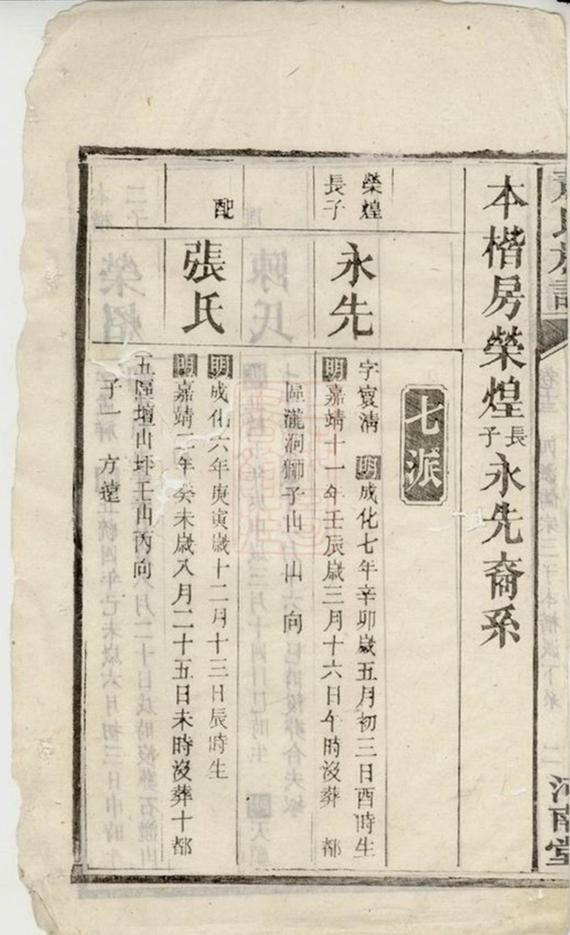 氏族譜
河南堂
本楷房榮煌長子永先裔系
七派
榮煌
長子
永先
字 清 明成化七年辛卯歲五月初三日酉時生
明嘉靖十一年壬辰歲三月十六日午時沒葬 都
區瀧洞獅子山 山向
配
張氏
明成化六年庚寅歲十二月十三日辰時生
明嘉靖二年癸未歲八月二十五日未時沒葬十都
五區壇山坪壬山丙向
子一 方遠